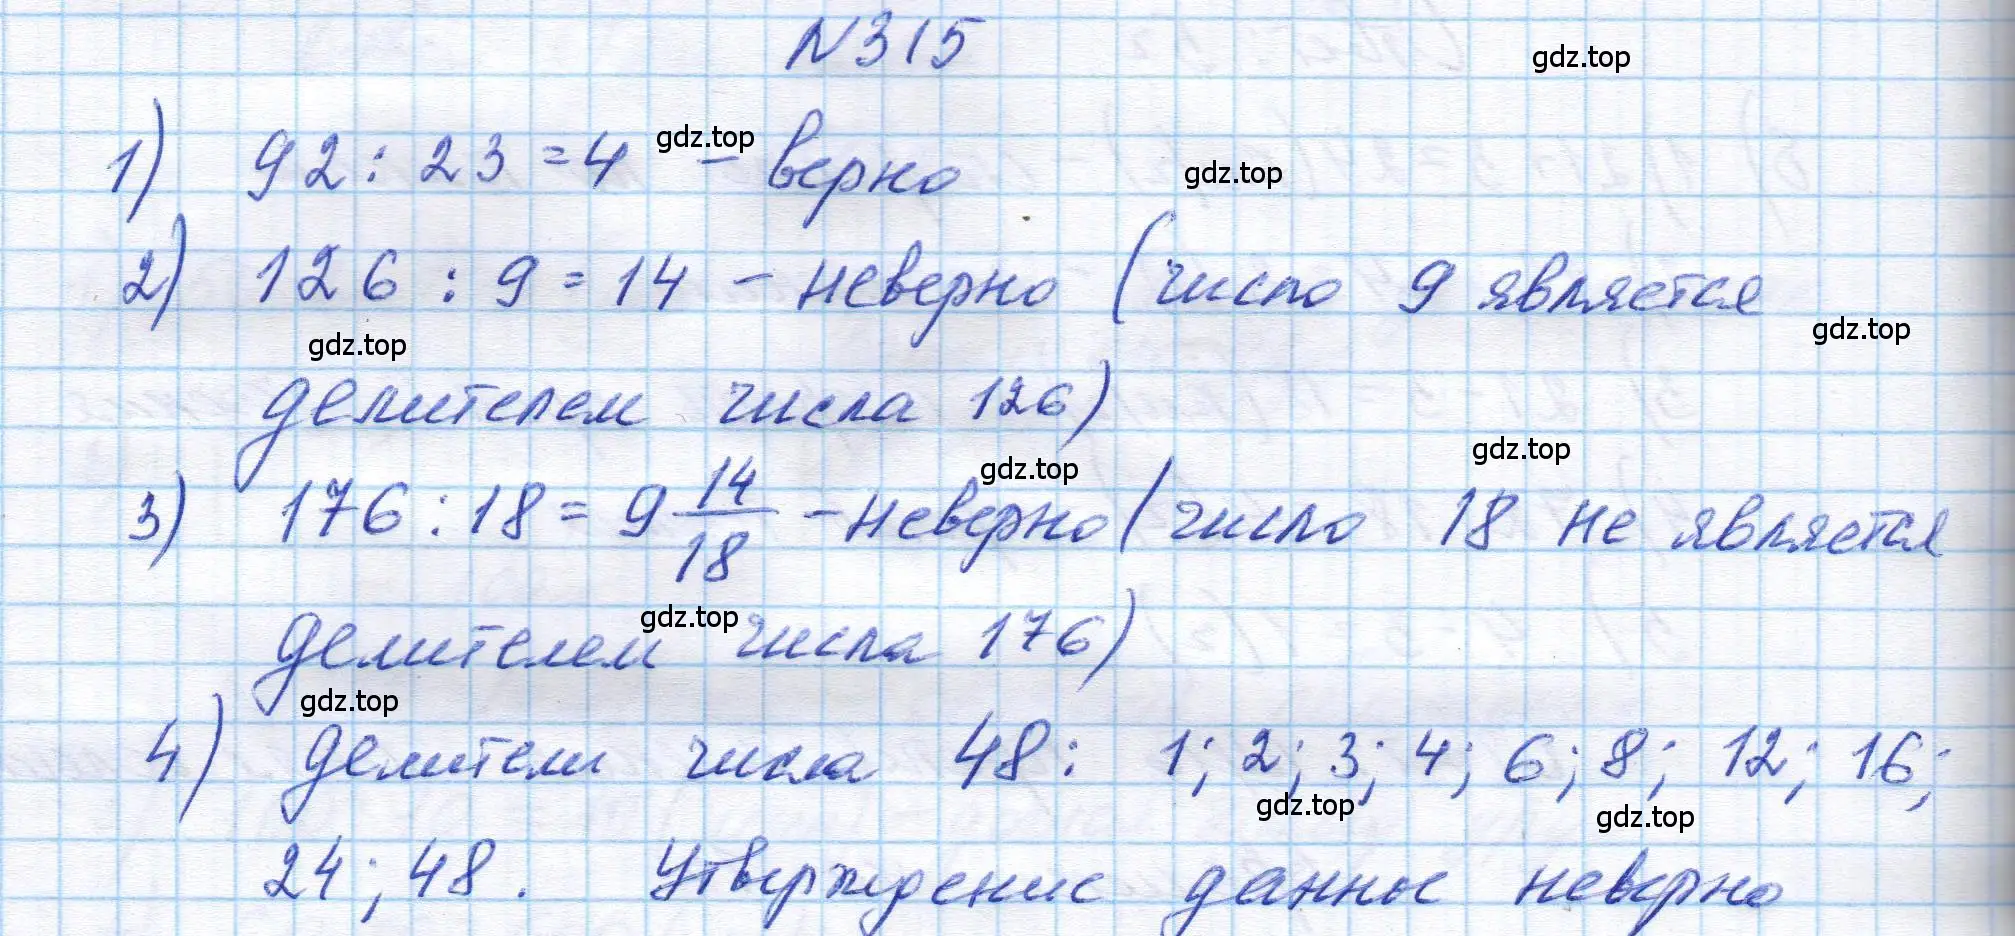 N315
gdz.top
1) 92 : 23 = 4 - верно
gdz.top
gdz.top
2) 126 : 9 = 14 - неверно (число 9 является
gdz.top
gdz.top
делителем числа 126)
gdz.top
gdz.top
3) 176 : 18 = 9 14/18 - неверно (число 18 не является
gdz.top
делителем числа 176)
gdz.top
4) делители числа 48: 1; 2; 3; 4; 6; 8; 12; 16;
gdz.top
gdz.top
24; 48. Утверждение данное неверно